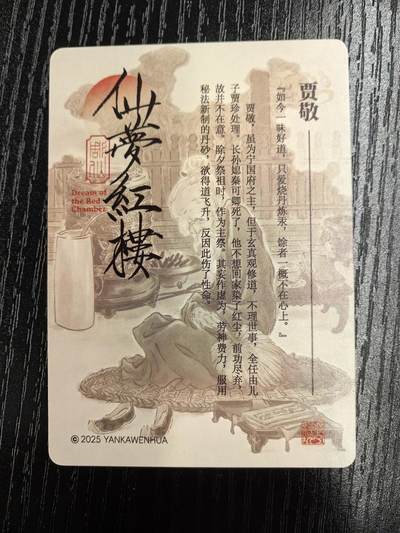 贾敬
『如今一味好道，只爱烧丹炼汞，馀者一概不在心上。』
贾敬，虽为宁国府之主，但于玄真观修道，不理世事，全任由儿
子贾珍处理。长孙媳秦可卿死了，他不想回家染了红尘，前功尽弃，
故并不在意。除夕祭祖时，作为主祭。其妄作虚为，劳神费力，服用
秘法新制的丹砂，欲得道飞升，反因此伤了性命。
仙夢紅樓
Dream of
the Red
Chamber
© 2025 YANKAWENHUA